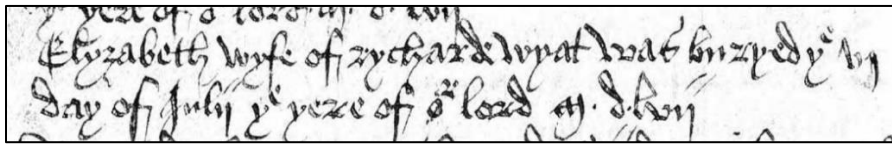 yᵉ yere of oʳ lord m. d. lvii
Elyzabeth wyfe of rycharde wyat was buryed yᵉ vj
day of Julii yᵉ yere of oʳ lord m. d. lvii